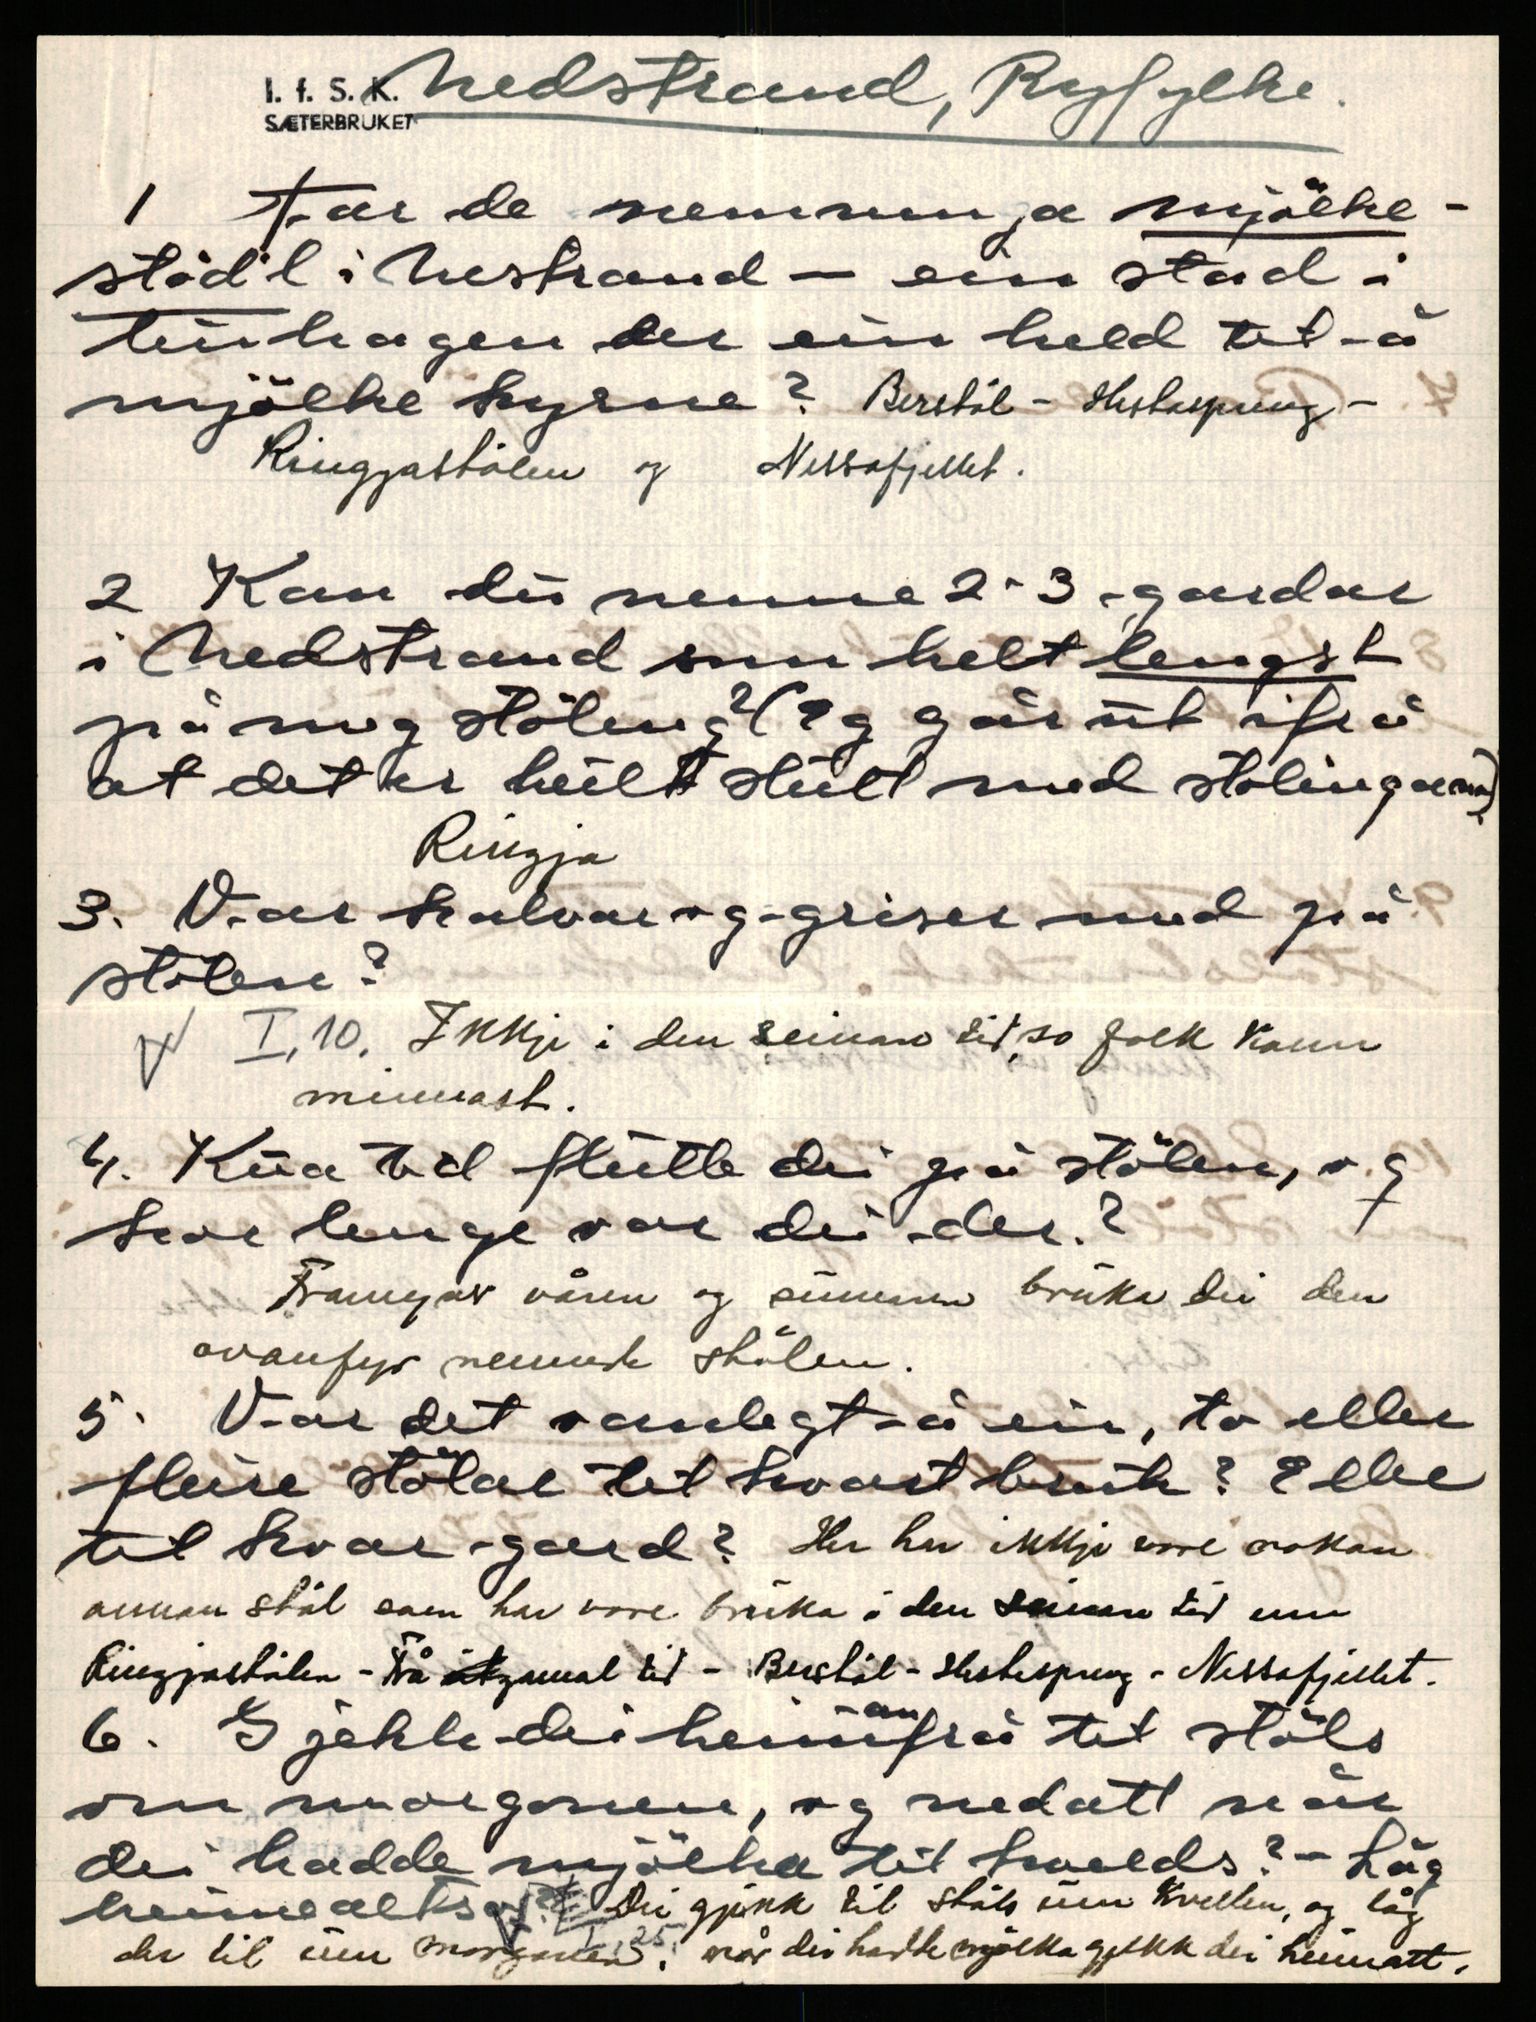 I. f. S. K. Nedstrand, Ryfylke.
SÆTERBRUKET
1 Har de nemnunga mjölke-
stöd'l i Nestrand – ein stad i
tunhagen der ein held til å
mjölke kyrne? Berstöl – Hestasprang –
Ringjastölen og Nessafjellet.
2 Kan du nemne 2-3 gardar
i Nedstrand som helt lengst
på meg stöling? (Eg går ut ifrå
at det er heilt slutt med stölinga nå)
Ringja
3. Var kalvar og griser med på
stölen?
I, 10. Ikkje i den seinare tid, so folk kann
minnast.
4. Kva tid flutte dei på stölen, og
kor lenge var dei der?
Framyver våren og sumaren bruka dei den
ovanfyr nemnde stölen.
5. Var det vanlegt å ein, to eller
fleire stölar til kvart bruk? Eller
til kvar gard? Her har ikkje vore nokon
annan stöl som har vore bruka i den seinare tid enn
Ringjastölen – Frå gamal tid – Berstöl – Hestesprang – Nessafjellet.
6. Gjekk dei heiman frå til støls
om morgonen, og nedatt når
dei hadde mjölka til kvelds? – Låg
heime altso? Dei gjekk til støls um kvelden, og låg
I, 25.
der til um morgonen. når dei hadde mjølka gjekk dei heimatt.